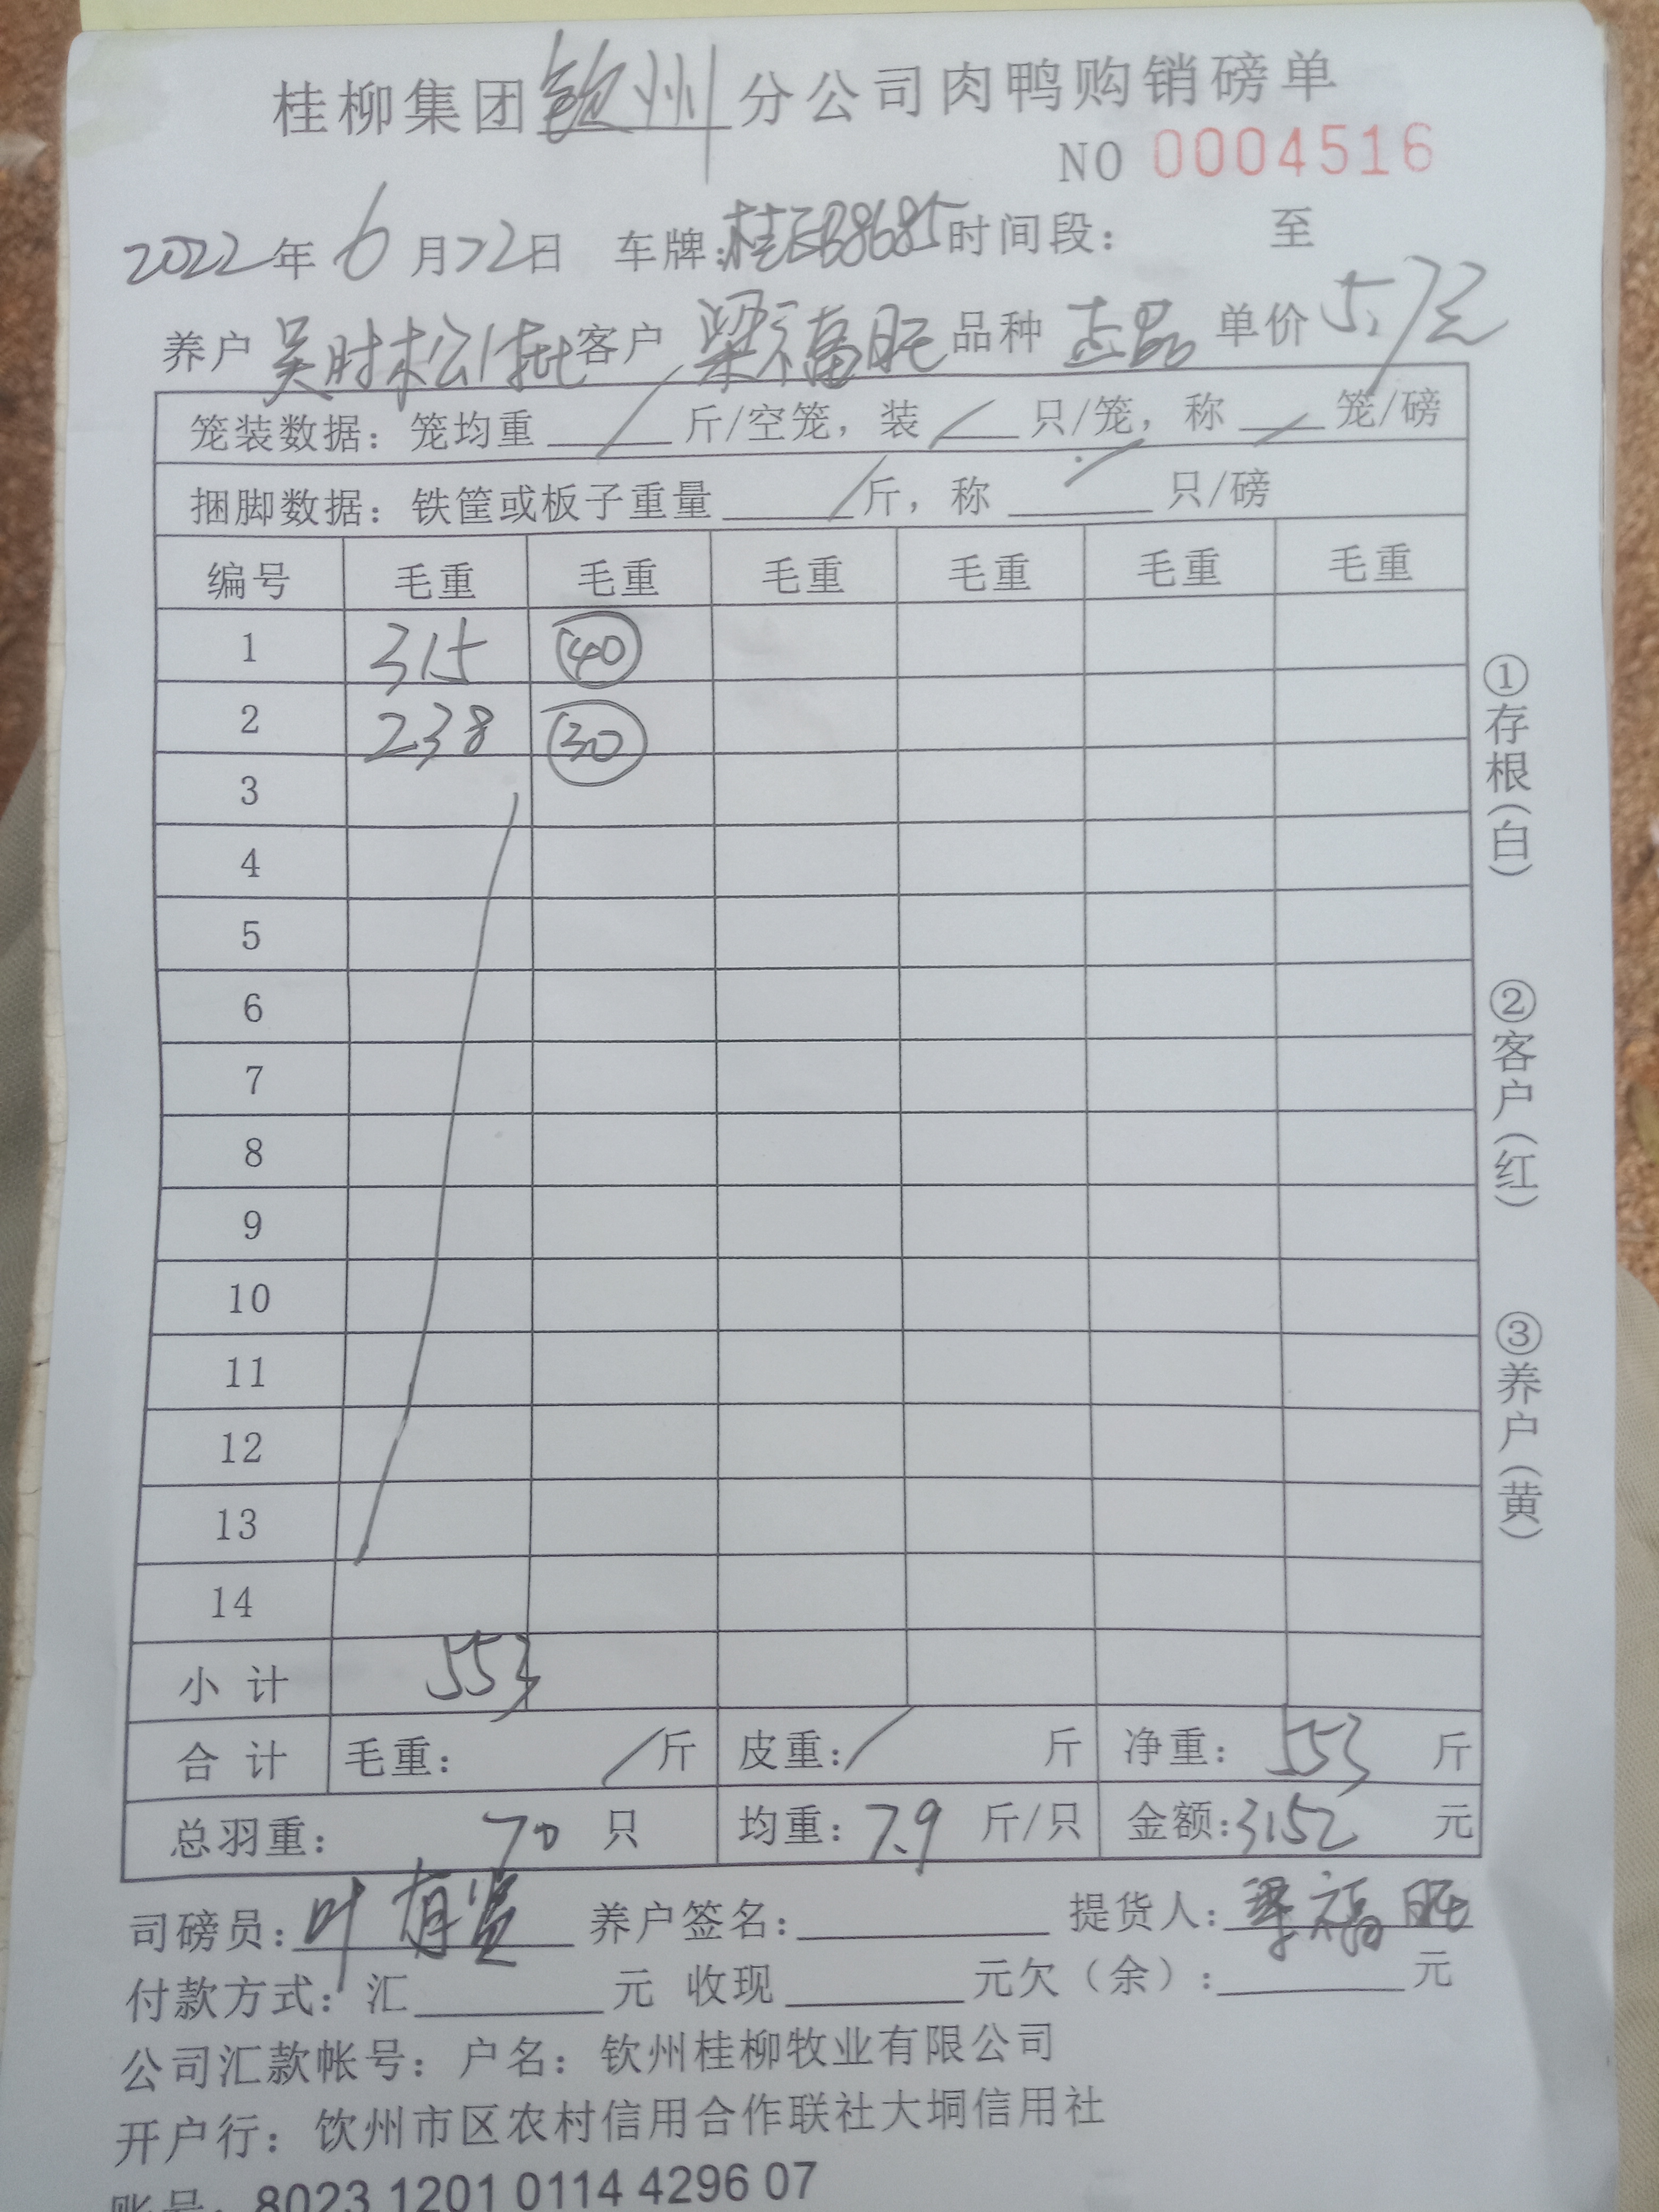 桂柳集团钦州分公司肉鸭购销磅单
NO 0004516
2022年6月22日 车牌:桂EB8685时间段: 至
养户 吴时松1批 客户 梁福旺 品种 正品 单价5.7元
笼装数据: 笼均重 / 斤/空笼, 装 / 只/笼, 称 / 笼/磅
捆脚数据: 铁筐或板子重量 / 斤, 称 / 只/磅
编号 毛重 毛重 毛重 毛重 毛重 毛重
1 315 40
2 238 30
3
4
5
6
7
8
9
10
11
12
13
14
小计 553
合计 毛重: / 斤 皮重: / 斤 净重: 553 斤
总羽重: 70 只 均重: 7.9 斤/只 金额: 3152 元
司磅员: 叶 养户签名: 提货人: 梁福旺
付款方式: 汇 元 收现 元欠(余): 元
公司汇款帐号: 户名: 钦州桂柳牧业有限公司
开户行: 钦州市区农村信用合作联社大垌信用社
账号: 8023 1201 0114 4296 07
①存根(白)
②客户(红)
③养户(黄)